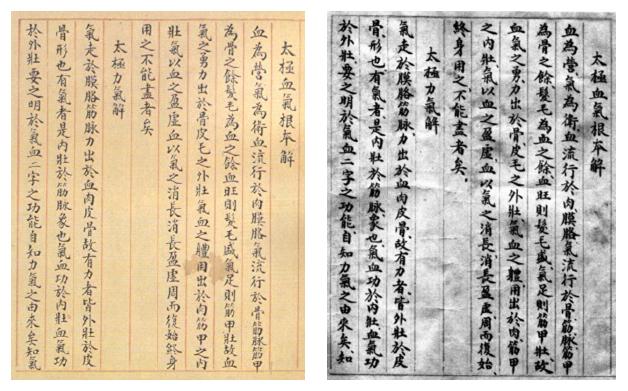 太極血氣根本解
血為營氣為衛血流行於肉膜胳氣流行於骨筋脉筋甲
為骨之餘髮毛為血之餘血旺則髮毛盛氣足則筋甲壯故血
氣之勇力出於骨皮毛之外壯氣血之體用出於肉筋甲之內
壯氣以血之盈虛血以氣之消長消長盈虛周而復始終身
用之不能盡者矣
太極力氣解
氣走於膜胳筋脉力出於血肉皮骨故有力者皆外壯於皮
骨形也有氣者是內壯於筋脉象也氣血功於內壯血氣功
於外壯要之明於氣血二字之功能自知力氣之由來矣知氣
太極血氣根本解
血為營氣為衛血流行於肉膜胳氣流行於骨筋脉筋甲
為骨之餘髮毛為血之餘血旺則髮毛盛氣足則筋甲壯故
血氣之勇力出於骨皮毛之外壯氣血之體用出於肉筋甲
之內壯氣以血之盈虛血以氣之消長消長盈虛周而復始
終身用之不能盡者矣
太極力氣解
氣走於膜胳筋脉力出於血肉皮骨故有力者皆外壯於皮
骨形也有氣者是內壯於筋脉象也氣血功於內壯血氣功
於外壯要之明於氣血二字之功能自知力氣之由來矣知